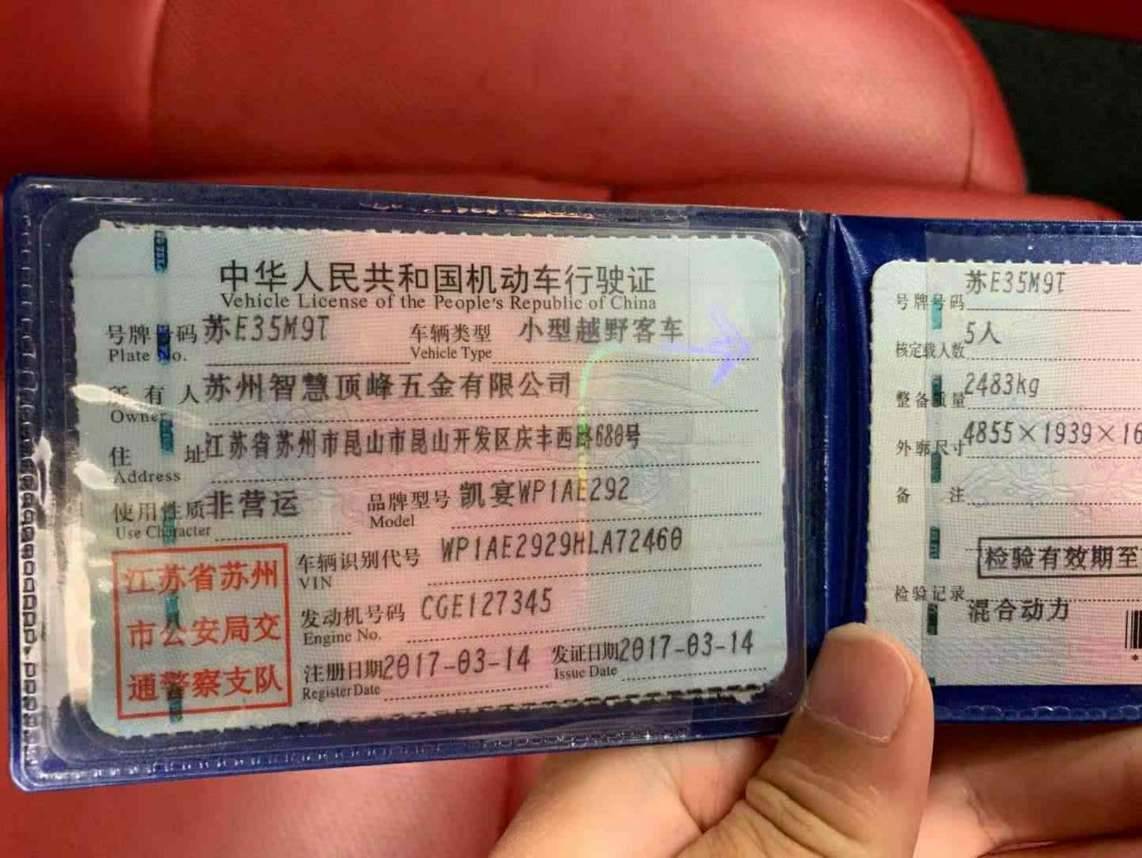 中华人民共和国机动车行驶证
Vehicle License of the People's Republic of China
号牌号码 苏E35M9T 车辆类型 小型越野客车
Plate No. Vehicle Type
所有人 苏州智慧顶峰五金有限公司
Owner
住址 江苏省苏州市昆山市昆山开发区庆丰西路680号
Address
使用性质 非营运 品牌型号 凯宴WP1AE292
Use Character Model
江苏省苏州
市公安局交
通警察支队
车辆识别代号 WP1AE2929HLA72460
VIN
发动机号码 CGE127345
Engine No.
注册日期 2017-03-14 发证日期 2017-03-14
Register Date Issue Date
号牌号码 苏E35M9T
核定载人数 5人
整备质量 2483kg
外廓尺寸 4855×1939×16
备注
检验有效期至
检验记录
混合动力